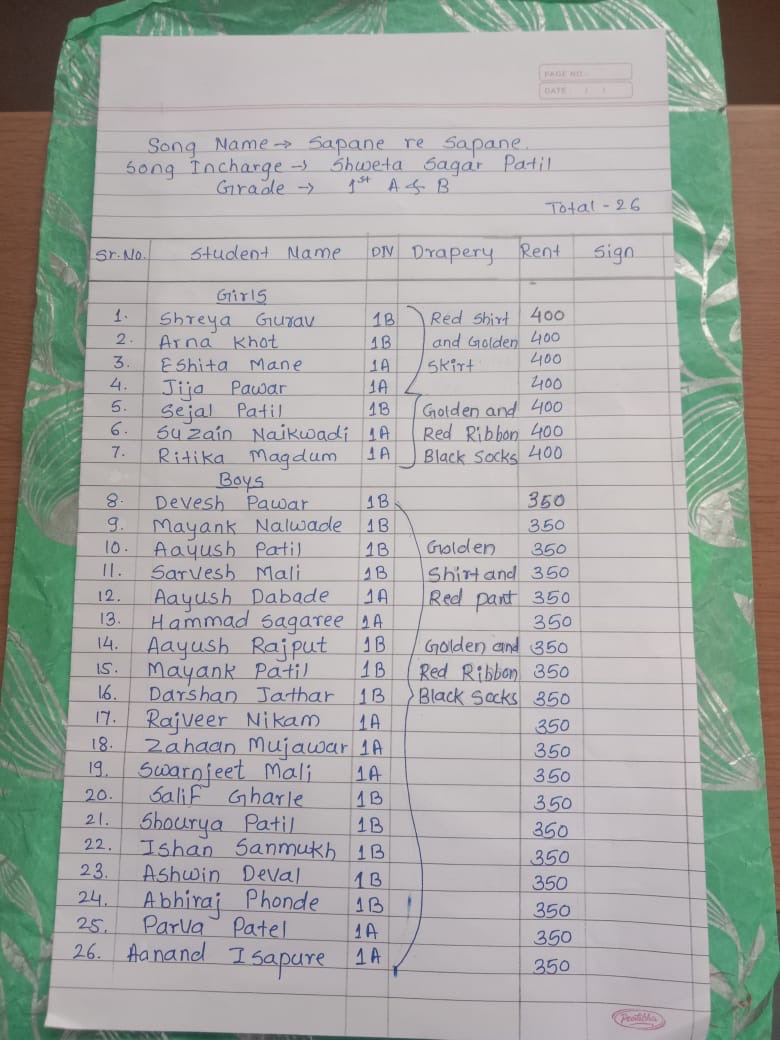 PAGE NO.:
DATE: / /
Song Name → Sapane re Sapane.
Song Incharge → Shweta Sagar Patil
Grade → 1st A & B
Total - 26
Sr.No. Student Name DIV Drapery Rent Sign
Girls
1. Shreya Gurav 1B Red Shirt 400
2. Arna Khot 1B and Golden 400
3. Eshita Mane 1A Skirt 400
4. Jija Pawar 1A 400
5. Sejal Patil 1B Golden and 400
6. Suzain Naikwadi 1A Red Ribbon 400
7. Ritika Magdum 1A Black Socks 400
Boys
8. Devesh Pawar 1B 350
9. Mayank Nalwade 1B 350
10. Aayush Patil 1B Golden 350
11. Sarvesh Mali 1B Shirt and 350
12. Aayush Dabade 1A Red pant 350
13. Hammad Sagaree 1A 350
14. Aayush Rajput 1B Golden and 350
15. Mayank Patil 1B Red Ribbon 350
16. Darshan Jathar 1B Black Socks 350
17. Rajveer Nikam 1A 350
18. Zahaan Mujawar 1A 350
19. Swarnjeet Mali 1A 350
20. Salif Gharle 1B 350
21. Shourya Patil 1B 350
22. Ishan Sanmukh 1B 350
23. Ashwin Deval 1B 350
24. Abhiraj Phonde 1B 350
25. Parva Patel 1A 350
26. Aanand Isapure 1A 350
Pratibha